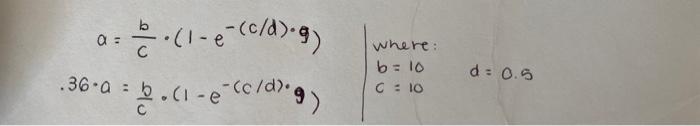 a = b/c · (1 - e^-(c/d)·g)
.36·a = b/c · (1 - e^-(c/d)·g)
where:
b = 10
c = 10
d = 0.5